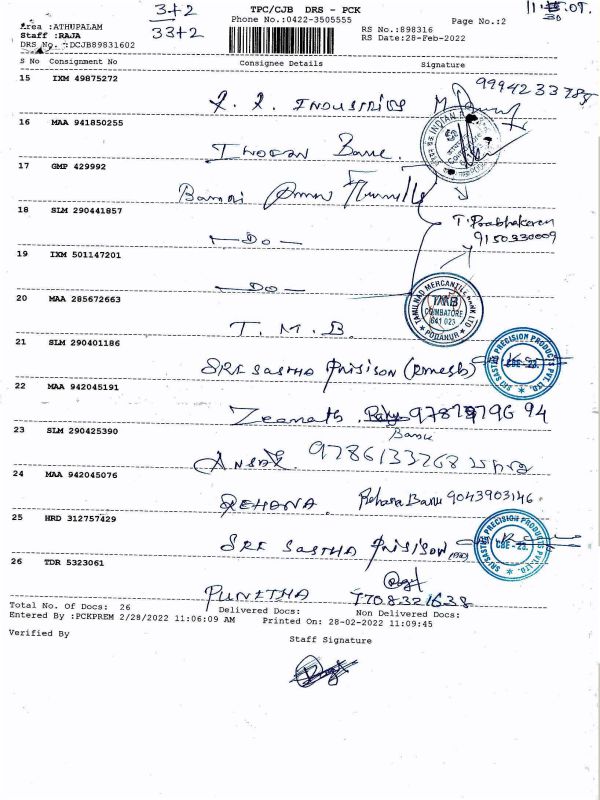 3+2
33+2
TPC/CJB DRS - PCK
Phone No.:0422-3505555
Page No.:2
Area :ATHUPALAM
Staff :RAJA
DRS No. :DCJB89831602
RS No.:898316
RS Date:28-Feb-2022
S No Consignment No Consignee Details Signature
15 IXM 49875272
INDUSTRIES
16 MAA 941850255
Bank.
17 GMP 429992
18 SLM 290441857
— Do —
T. Prabhakaran
9150330009
19 IXM 501147201
— Do —
20 MAA 285672663
T. M. B.
TAMILNAD MERCANTILE BANK LTD
TMB
COIMBATORE
641 023
PODANUR
21 SLM 290401186
SRE SASTHA
SRI SASTHA PRECISION PRODUCTS PVT. LTD.
CBE - 23.
22 MAA 942045191
Zeenath
23 SLM 290425390
Banu
9786133768
24 MAA 942045076
REHANA. Rehana Banu 9043903146
25 HRD 312757429
SRE SASTHA
SRI SASTHA PRECISION PRODUCTS PVT. LTD.
CBE - 23.
26 TDR 5323061
PUNITHA 7708321638
Total No. of Docs: 26 Delivered Docs: Non Delivered Docs:
Entered By :PCKPREM 2/28/2022 11:06:09 AM Printed On: 28-02-2022 11:09:45
Verified By
Staff Signature